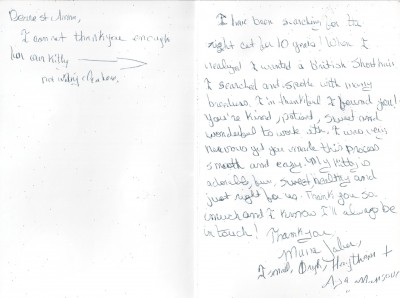 I cannot thank you enough
for our kitty
I have been searching for the
right cat for 10 years! When I
realized I wanted a British Shorthair
I searched and spoke with many
breeders. I'm thankful I found you!
You're kind, patient, sweet and
wonderful to work with. I was very
nervous yet you made this process
smooth and enjoy. My Kitty is
adorable, fun, sweet, healthy and
just right for us. Thank you so
much and I know I'll always be
in touch!
Thank you